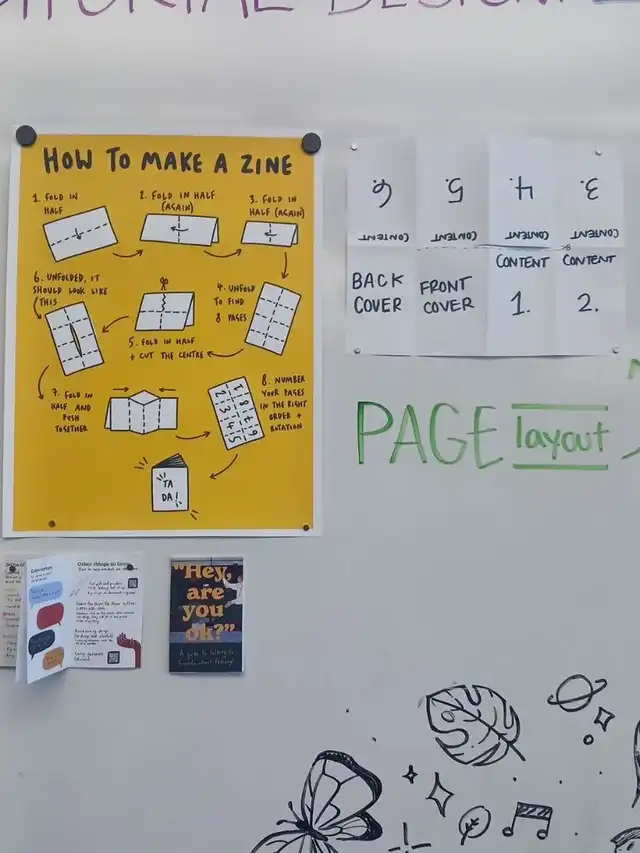 EDITORIAL DESIGN
HOW TO MAKE A ZINE
1. FOLD IN
HALF
2. FOLD IN HALF
(AGAIN)
3. FOLD IN
HALF (AGAIN)
4. UNFOLD
TO FIND
8 PAGES
5. FOLD IN HALF
+ CUT THE CENTRE
6. UNFOLDED, IT
SHOULD LOOK LIKE
THIS
7. FOLD IN
HALF AND
PUSH
TOGETHER
8. NUMBER
YOUR PAGES
IN THE RIGHT
ORDER +
ROTATION
1 8 7 6
2 3 4 5
TA
DA!
6. 5. 4. 3.
CONTENT CONTENT CONTENT CONTENT
BACK
COVER
FRONT
COVER
CONTENT
1.
CONTENT
2.
PAGE layout
Other things to know
"Hey,
are
you
ok?"
A guide to talking to